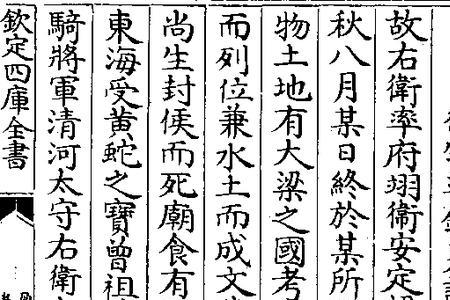 故右衛率府翊衛安定
秋八月某日終於某所
物土地有大梁之國考
而列位兼水土而成文
尚生封侯而死廟食有
東海受黃蛇之寶曾祖
騎將軍清河太守右衛
欽定四庫全書